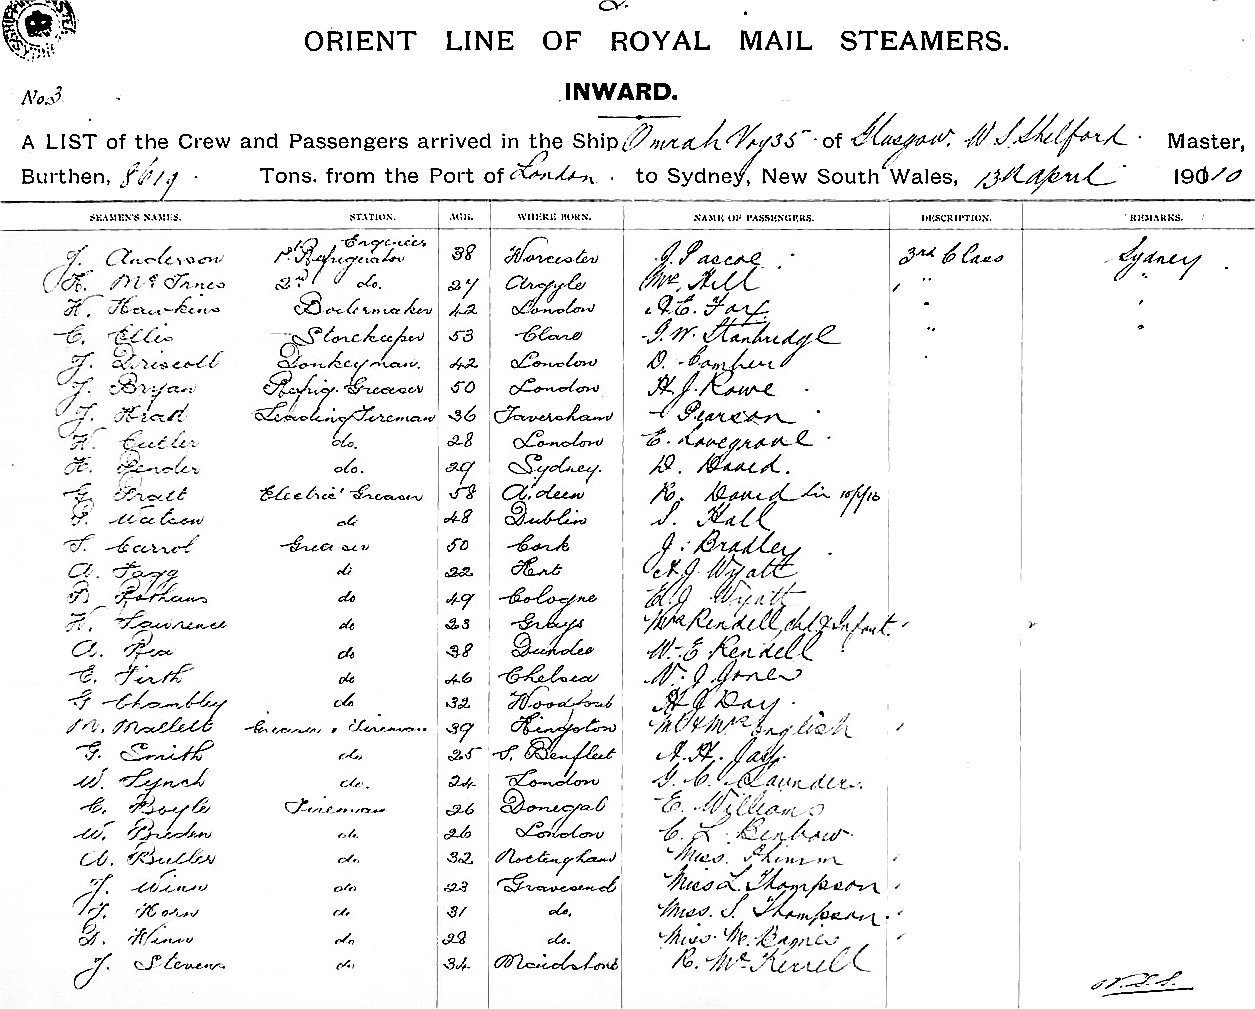 ORIENT LINE OF ROYAL MAIL STEAMERS.
No. 3
INWARD.
A LIST of the Crew and Passengers arrived in the Ship Omrah Voy 35 of Glasgow. W. S. Shelford Master,
Burthen, 8619 Tons. from the Port of London to Sydney, New South Wales, 13th April 1910
SEAMEN'S NAMES. STATION. AGE. WHERE BORN. NAME OF PASSENGERS. DESCRIPTION. REMARKS.
J. Anderson 1st Refrigerator Engineer 38 Worcester J. Pascoe 3rd Class Sydney
H. McInnes 2nd do. 27 Argyle Mc Hill "
H. Hawkins Boilermaker 42 London A. E. Fox "
C. Ellis Storekeeper 53 Clare J. W. Stanbridge "
J. Driscoll Donkeyman. 42 London D. Comber
J. Bryan Refrig. Greaser 50 London H. J. Rowe
J. Head Leading Fireman 36 Faversham Pearson
H. Cutler do. 28 London E. Lovegrove
H. Pender do. 29 Sydney. D. David.
G. Pratt Electric Greaser 58 R. David
P. Watson do 48 Dublin S. Hall
T. Carrol Greaser 50 Cork J. Bradley
A. Fagg do 22 Kent A J Wyatt
do 49 Cologne E. J Wyatt
H. Lawrence do 23 Grays Mrs Rendell, chd & Infant.
A. Rea do 38 Dundee W. E Rendell
E. Firth do 46 Chelsea W. J Jones
G Chambley do 32 Woodford H J Day
M. Mallett Greaser & Fireman 39 Kingston Mr & Mrs English
G. Smith do 25 S. Benfleet A. H. Jay
W. Lynch do. 24 London G. C. Saunders.
C. Boyle Fireman 26 Donegal E. Williams
W. Breden do. 26 London C. L. Benbow
A. Butler do. 32 Nottingham Miss.
J. Winn do 23 Gravesend Miss L. Thompson
J. Horn do 31 do. Miss. S. Thompson.
Winn do 28 do. Miss M. Barnes
J. Stevens do 34 Maidstone R. McKerrell
W.S.S.